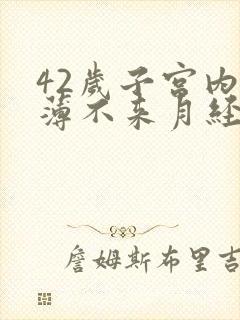 42歲子宮内
薄不来月經
詹姆斯布里吉